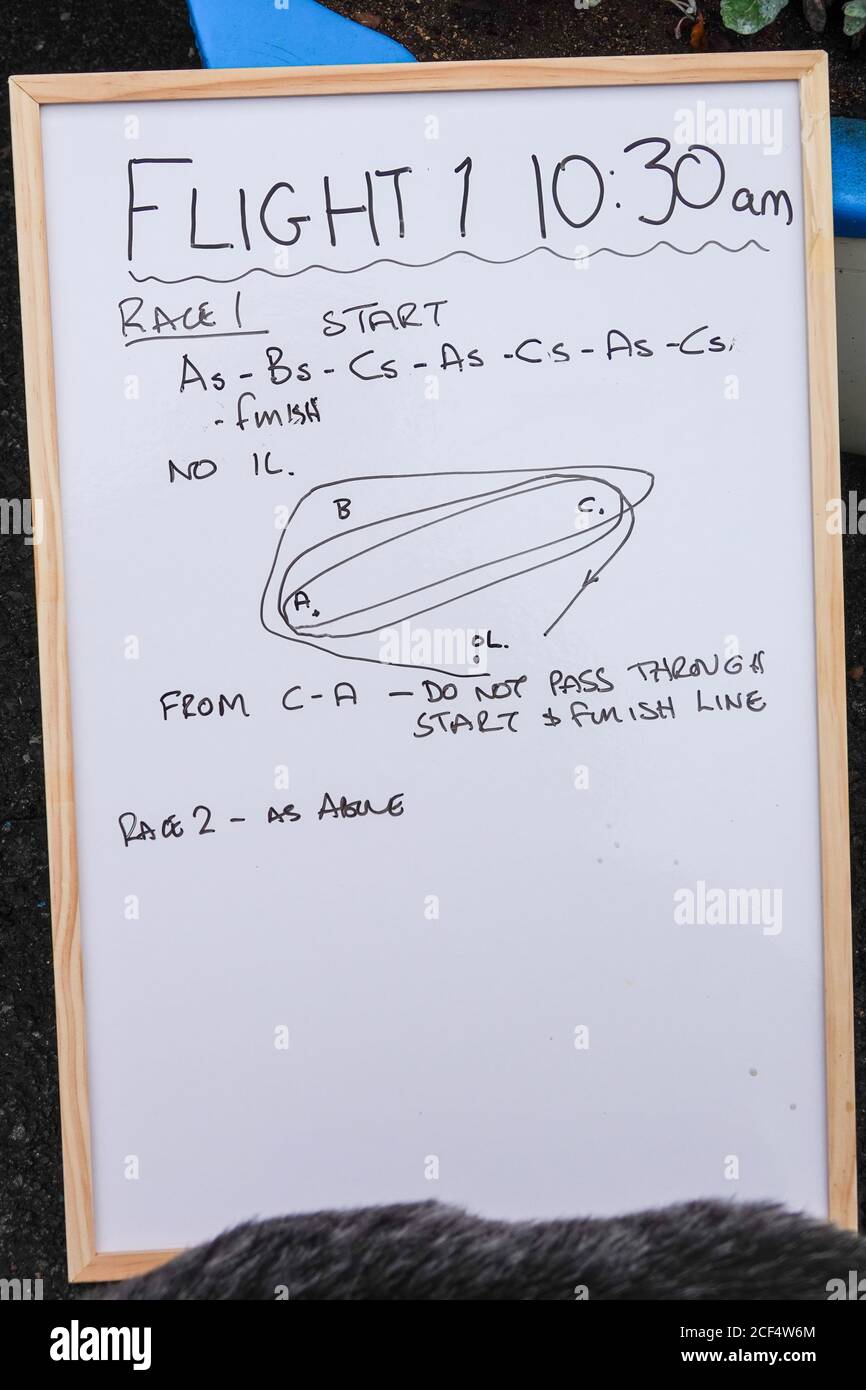 FLIGHT 1 10:30am
RACE 1 START
As - Bs - Cs - As - Cs - As - Cs.
- finish
NO IL.
B
C.
A.
OL.
FROM C-A - DO NOT PASS THROUGH
START & finish LINE
RACE 2 - AS ABOVE
alamy
alamy
alamy
a
a
a
a
a
a
a
a
a
alamy
Image ID: 2CF4W6M
www.alamy.com